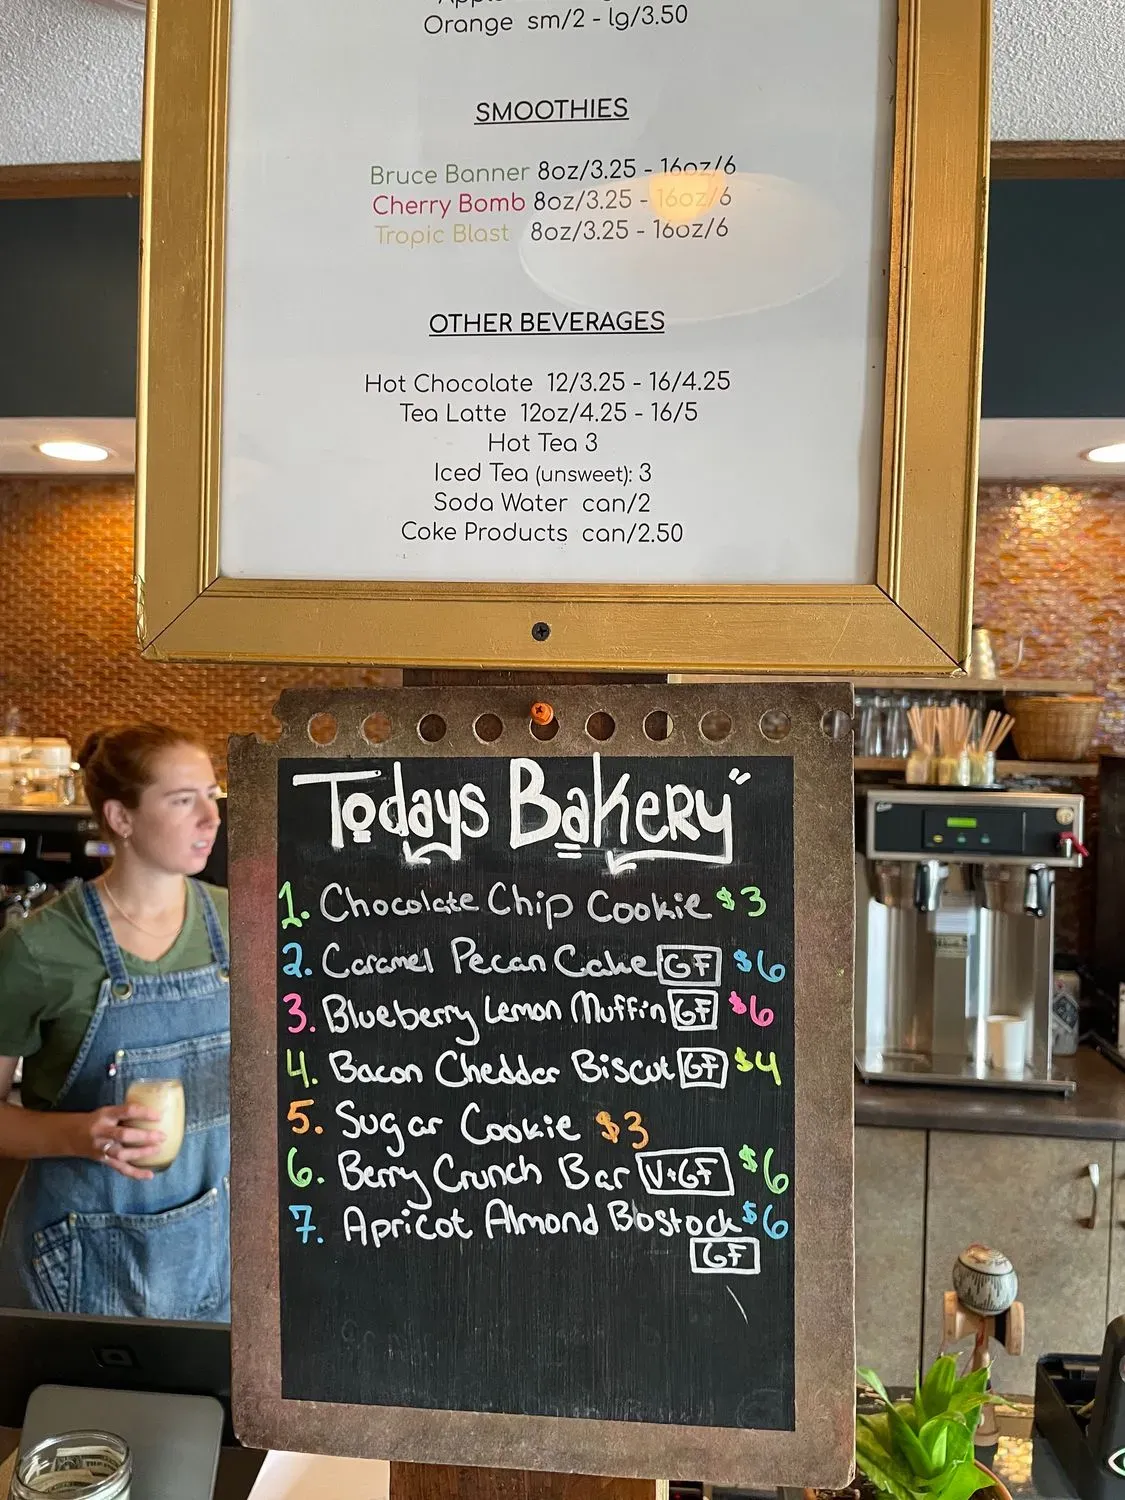 Orange sm/2 - lg/3.50
SMOOTHIES
Bruce Banner 8oz/3.25 - 16oz/6
Cherry Bomb 8oz/3.25 - 16oz/6
Tropic Blast 8oz/3.25 - 16oz/6
OTHER BEVERAGES
Hot Chocolate 12/3.25 - 16/4.25
Tea Latte 12oz/4.25 - 16/5
Hot Tea 3
Iced Tea (unsweet): 3
Soda Water can/2
Coke Products can/2.50
Todays Bakery"
1. Chocolate Chip Cookie $3
2. Caramel Pecan Cake GF $6
3. Blueberry Lemon Muffin GF $6
4. Bacon Cheddar Biscut GF $4
5. Sugar Cookie $3
6. Berry Crunch Bar V+GF $6
7. Apricot Almond Bostock $6
GF